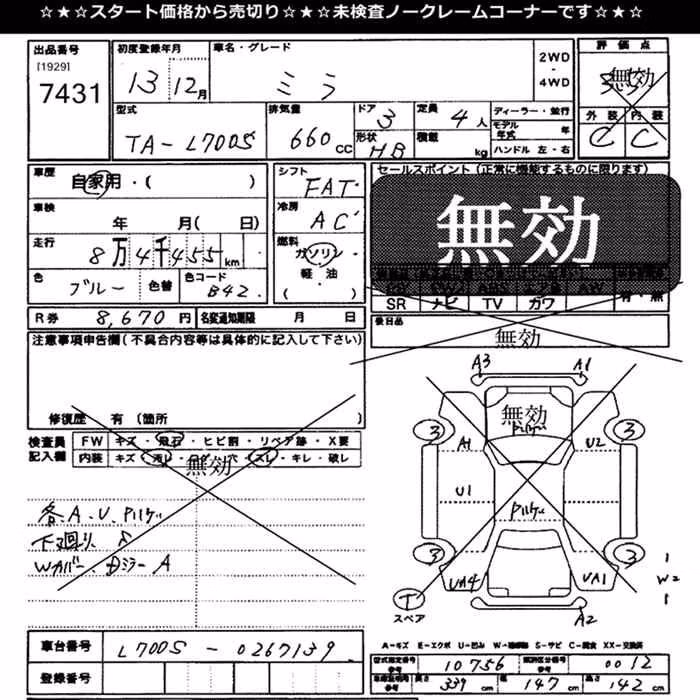 ☆★☆★スタート価格から売切り☆★☆★未検査ノークレームコーナーです☆★☆
出品番号
[1929]
7431
初度登録年月
13 12月
車名・グレード
ミラ
2WD
・
4WD
評価点
無効
外装 内装
C C
型式
TA-L700S
排気量
660 CC
ドア
3
形状
HB
定員
4 人
積載
kg
ディーラー・並行
モデル年式 年
ハンドル 左・右
車歴
自家用・( )
車検
年 月( 日)
走行
8万4千455km
色
ブルー
色替
色コード
B42
シフト
FAT
冷房
AC
燃料
ガソリン
軽・油
( )
セールスポイント(正常に機能するものに限ります)
無効
SR ナビ TV カワ
有・無
R券 8,670円
名変通知期限 月 日
後日品
無効
注意事項申告欄(不具合内容等は具体的に記入して下さい)
修復歴 有(箇所 )
検査員
記入欄
FW キズ・飛石・ヒビ割・リペア跡・X要
内装 キズ・汚レ・コゲ・穴・スレ・キレ・破レ
無効
各、A、U、Pハゲ
下廻り S
Wカバー、Dミラー A
A3 A1
無効
Pハゲ
3 3
A1 U2
U1
Pハゲ
3 3
UA4 UA1
T
スペア
A2
W2
車台番号
L700S-0267139
登録番号
A-キズ E-エクボ U-凹み S-サビ C-腐食 XX-交換済
型式指定番号
参考
10756
類別区分番号
参考
0012
参考
長さ 339cm
幅 147cm
高さ 142cm